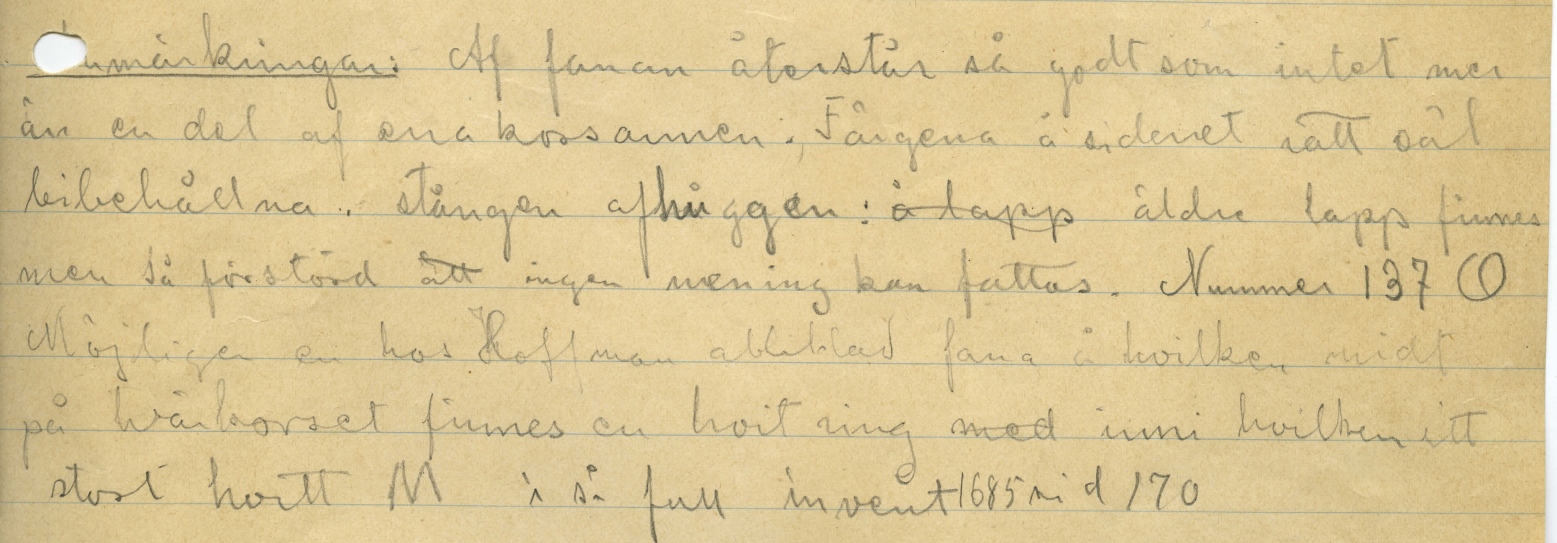 Anmärkningar: Af fanan återstår så godt som intet mer
än en del af ena korsarmen. Färgerna å sidenet rätt väl
bibehållna. stången afhuggen: å lapp äldre lapp finnes
men så förstörd att ingen mening kan fattas. Nummer 137 O
Möjligen en hos Hoffman afbildad fana å hvilken midt
på tvärkorset finnes en hvit ring med inni hvilken ett
stort hvitt M i så fall invent 1685 sid 170